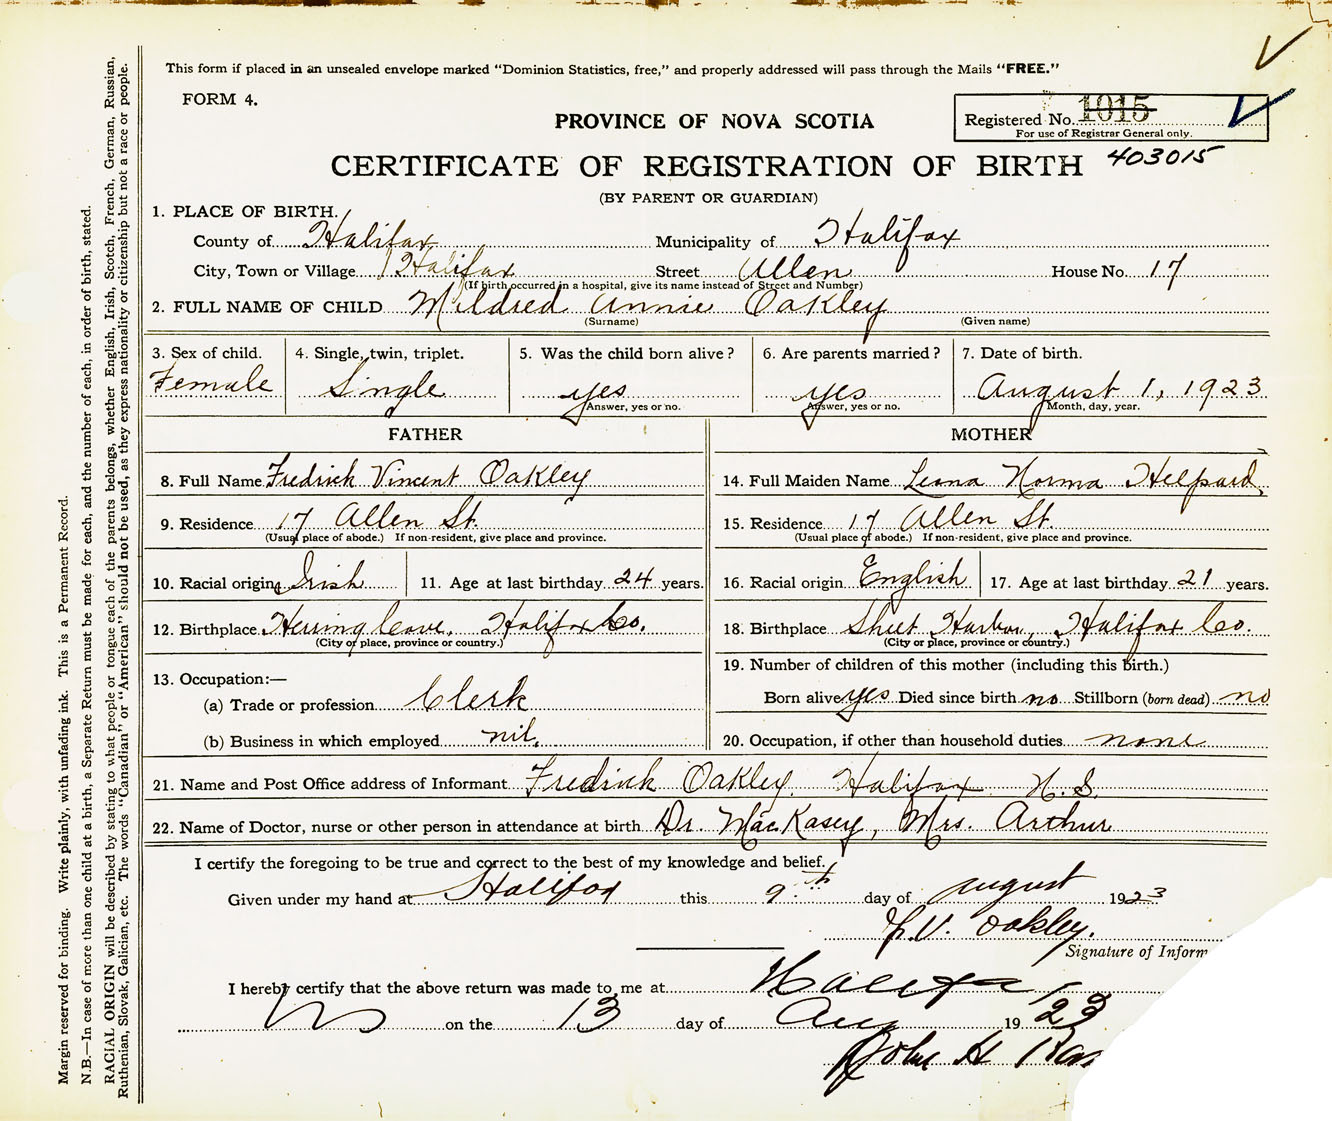 This form if placed in an unsealed envelope marked "Dominion Statistics, free," and properly addressed will pass through the Mails "FREE."
FORM 4.
Registered No. 1015
For use of Registrar General only.
PROVINCE OF NOVA SCOTIA
403015
CERTIFICATE OF REGISTRATION OF BIRTH
(BY PARENT OR GUARDIAN)
1. PLACE OF BIRTH.
County of Halifax Municipality of Halifax
City, Town or Village Halifax Street Allen House No. 17
(If birth occurred in a hospital, give its name instead of Street and Number)
2. FULL NAME OF CHILD Mildred Annie Oakley
(Surname) (Given name)
3. Sex of child. 4. Single, twin, triplet. 5. Was the child born alive? 6. Are parents married? 7. Date of birth.
Female Single yes yes August 1, 1923
Answer, yes or no. Answer, yes or no. Month, day, year.
FATHER MOTHER
8. Full Name Fredrick Vincent Oakley 14. Full Maiden Name Leona Norma Helpard
9. Residence 17 Allen St. 15. Residence 17 Allen St.
(Usual place of abode.) If non-resident, give place and province. (Usual place of abode.) If non-resident, give place and province.
10. Racial origin Irish 11. Age at last birthday 24 years. 16. Racial origin English 17. Age at last birthday 21 years.
12. Birthplace Herring Cove, Halifax Co. 18. Birthplace Sheet Harbor, Halifax Co.
(City or place, province or country.) (City or place, province or country.)
13. Occupation:— 19. Number of children of this mother (including this birth.)
(a) Trade or profession Clerk Born alive yes Died since birth no Stillborn (born dead) no
(b) Business in which employed nil. 20. Occupation, if other than household duties none
21. Name and Post Office address of Informant Fredrick Oakley. Halifax N.S.
22. Name of Doctor, nurse or other person in attendance at birth Dr. MacKasey, Mrs. Arthur
I certify the foregoing to be true and correct to the best of my knowledge and belief.
Given under my hand at Halifax this 9th day of August 1923
F.V. Oakley.
Signature of Inform
I hereby certify that the above return was made to me at Halifax
on the 13 day of Aug 1923
John H
Margin reserved for binding. Write plainly, with unfading ink. This is a Permanent Record.
N.B.—In case of more than one child at a birth, a Separate Return must be made for each, and the number of each, in order of birth, stated.
RACIAL ORIGIN will be described by stating to what people or tongue each of the parents belongs, whether English, Irish, Scotch, French, German, Russian,
Ruthenian, Slovak, Galician, etc. The words "Canadian" or "American" should not be used, as they express nationality or citizenship but not a race or people.